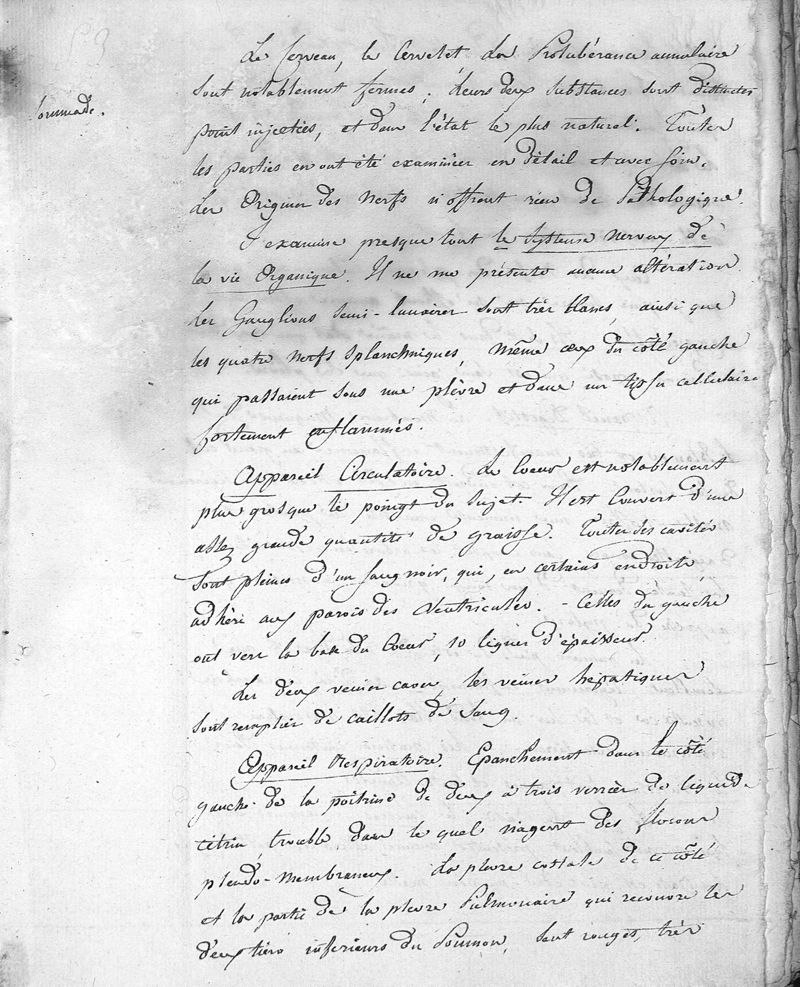 Le Cerveau, le Cervelet et la Protubérance annulaire
sont notablement fermes ; Leurs deux substances sont distinctes
point injectées, et dans l'état le plus naturel. Toutes
les parties en ont été examinées en détail et avec soin.
Les Origines des Nerfs n'offrent rien de Pathologique.
J'examine presque tout le système nerveux de
la vie Organique. Il ne me présente aucune altération
Les Ganglions semi-lunaires sont très blancs, ainsi que
les quatre nerfs splanchniques, même ceux du côté gauche
qui passaient sous une plèvre et dans un tissu cellulaire
fortement enflammés.
Appareil Circulatoire. Le Coeur est notablement
plus gros que le poingt du sujet. Il est Couvert d'une
assez grande quantité de graisse. Toutes ses cavités
sont pleines d'un sang noir, qui, en certains endroits
adhère aux parois des Ventricules. - Celles du gauche
ont vers la base du Coeur, 10 lignes d'épaisseur
Les deux veines caves, les veines hépatiques
sont remplies de caillots de sang.
Appareil Respiratoire. Epanchement dans le côté
gauche de la poitrine de deux à trois verrées de liquide
citrin, trouble, dans le quel nagent des flocons
pseudo-membraneux. La plevre costale de ce côté
et la partie de la plevre Pulmonaire qui recouvre les
deux tiers inferieurs du Poumon, sont rouges, très